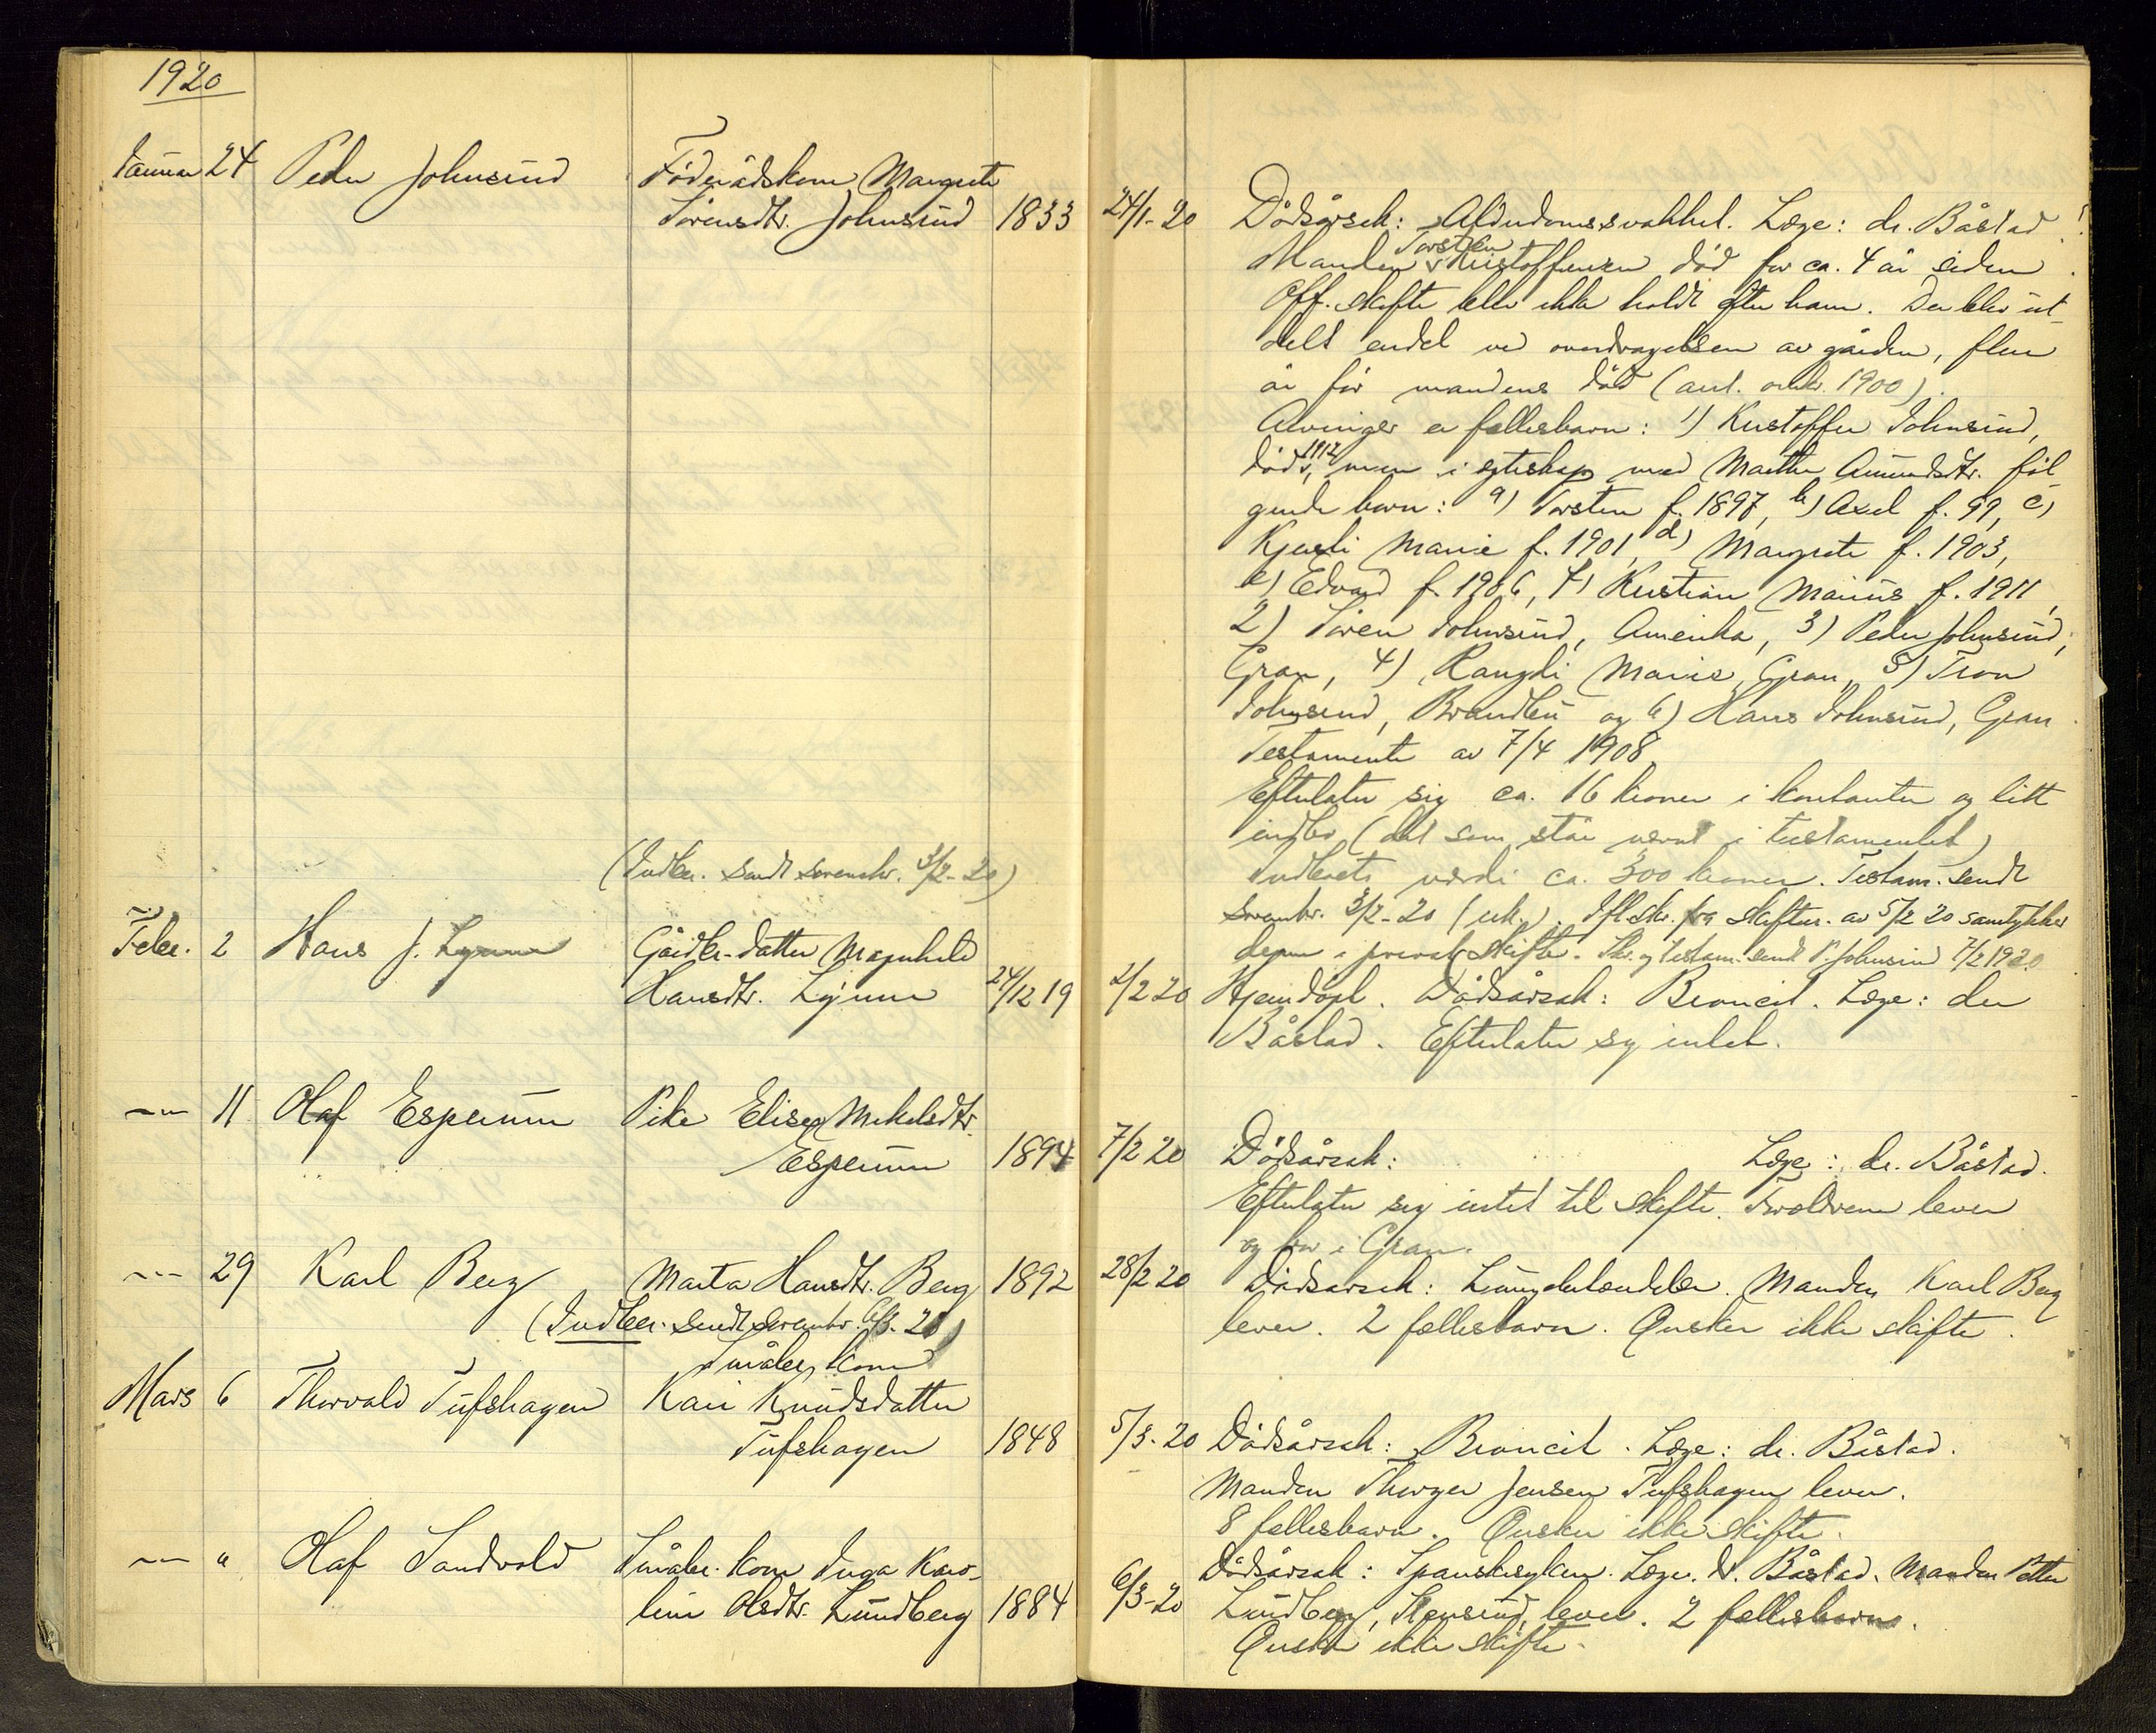 1920
Januar 24 Peder Johnsrud Føderådskone Margrete
Sørensdtr. Johnsrud 1833 24/1-20 Dødsårsak: Alderdomssvakhet. Læge: dr. Båstad.
Manden Torsten Kristoffersen død for ca. 4 år siden.
Off. skifte blev ikke holdt efter ham. Der blev ut-
delt endel ved overdragelsen av gården, flere
år før mandens død (ant. omkr. 1900).
Arvinger er fællesbarn: 1) Kristoffer Johnsrud,
død 1912, men i egteskap med Marthe Amundsdtr. føl
gende barn: a) Torsten f. 1897, b) Axel f. 99, c)
Kjersti Marie f. 1901, d) Margrete f. 1903,
e) Edvard f. 1906, f) Kristian Marius f. 1911,
2) Søren Johnsrud, Amerika, 3) Peder Johnsrud,
Gran, 4) Rangdi Marie, Gran, 5) Tron
Johnsrud, Brandbu og 6) Hans Johnsrud, Gran.
Testamente av 7/4 1908.
Efterlater sig ca. 16 kroner i kontanter og litt
indbo (det som står nævnt i testamentet)
Indboets værdi ca. 300 kroner. Testam. sendt
(Indber. sendt sorenskr. 3/2-20)
sorenskr. 3/2-20 Ifl. skr. fra skifter. av 5/2 20 samtykker
denne i privat skifte. Skr. og testam. sendt P. Johnsrud 7/2 1920.
Febr. 2 Hans J. Lynne Gårdbr.-datter Magnhild
Hansdtr. Lynne 24/12 19 2/2 20 Hjemdøpt. Dødsårsak: Broncit. Læge: dr
Båstad. Efterlater sig intet.
—"— 11 Olaf Esperum Pike Elise Mikelsdtr.
Esperum 1894 7/2 20 Dødsårsak: Læge: dr. Båstad.
Efterlater sig intet til skifte. Forældrene lever
og bor i Gran.
—"— 29 Karl Berg Marta Hansdtr. Berg 1892 28/2 20 Dødsårsak: Lungebetændelse. Manden Karl Berg
(Indber. sendt sorenskr. 6/3. 20) lever. 2 fællesbarn. Ønsker ikke skifte.
Småbr. kone
Mars 6 Thorvald Tufshagen Kari Knudsdatter
Tufshagen 1848 5/3-20 Dødsårsak: Broncit. Læge: dr. Båstad.
Manden Thorger Jensen Tufshagen lever.
8 fællesbarn. Ønsker ikke skifte.
—"— " Olaf Sandvold Småbr. kone Inga Karo-
line Olsdtr. Lundberg 1884 6/3-20 Dødsårsak: Spanskesyken. Læge. dr. Båstad. Manden Petter
Lundberg, lever. 2 fællesbarn.
Ønsker ikke skifte.